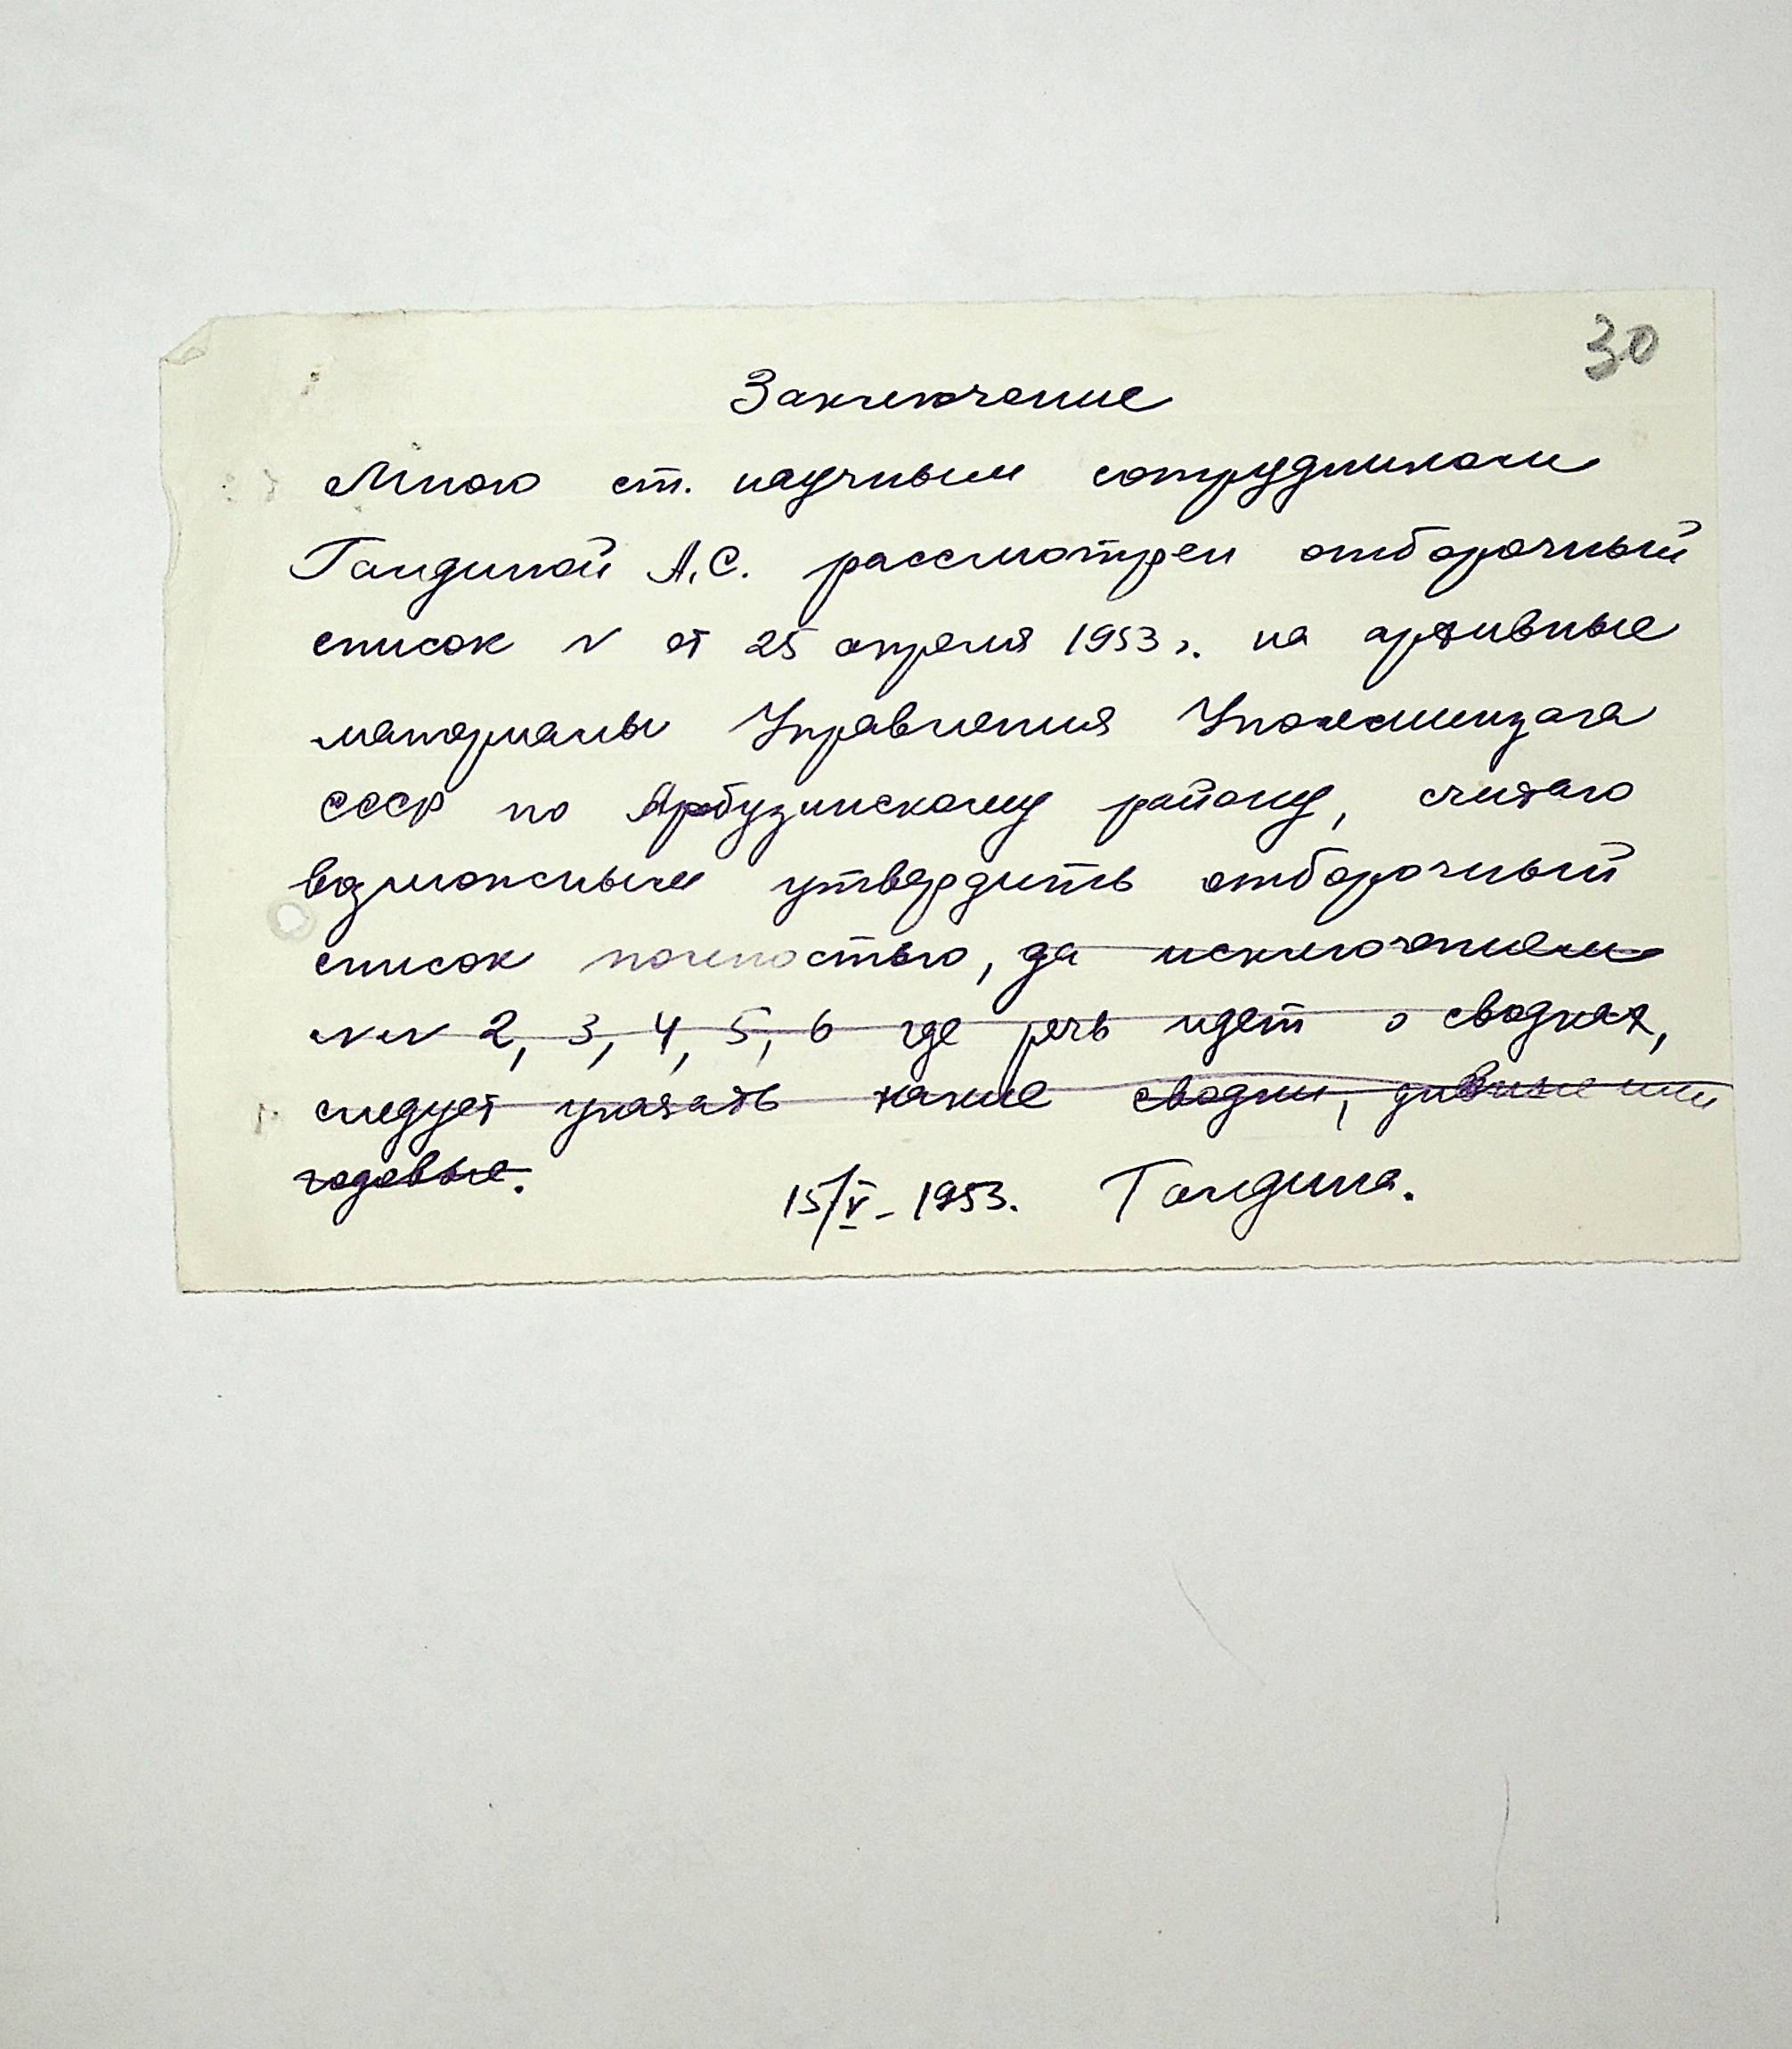 30
Заключение
Мною ст. научным сотрудником
Гандиной А.С. рассмотрен отборочный
список № от 25 апреля 1953 г. на архивные
материалы Управления Уполминзага
СССР по Арбузинскому району, считаю
возможным утвердить отборочный
список полностью, за исключением
№№ 2, 3, 4, 5, 6 где речь идет о сводках,
следует указать какие сводки, или
годовые.
15/V - 1953. Гандина.